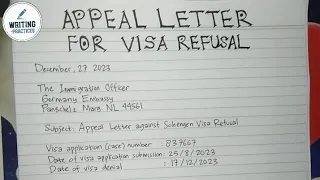 WRITING
PRACTICES
APPEAL LETTER
FOR VISA REFUSAL
December, 27 2023
The Immigration Officer
Germany Embassy
Panschelz Mare NL 44561
Subject: Appeal Letter against Schengen Visa Refusal
Visa application (case) number : 837667
Date of visa application submission: 25/8/2023
Date of visa denial : 17/12/2023